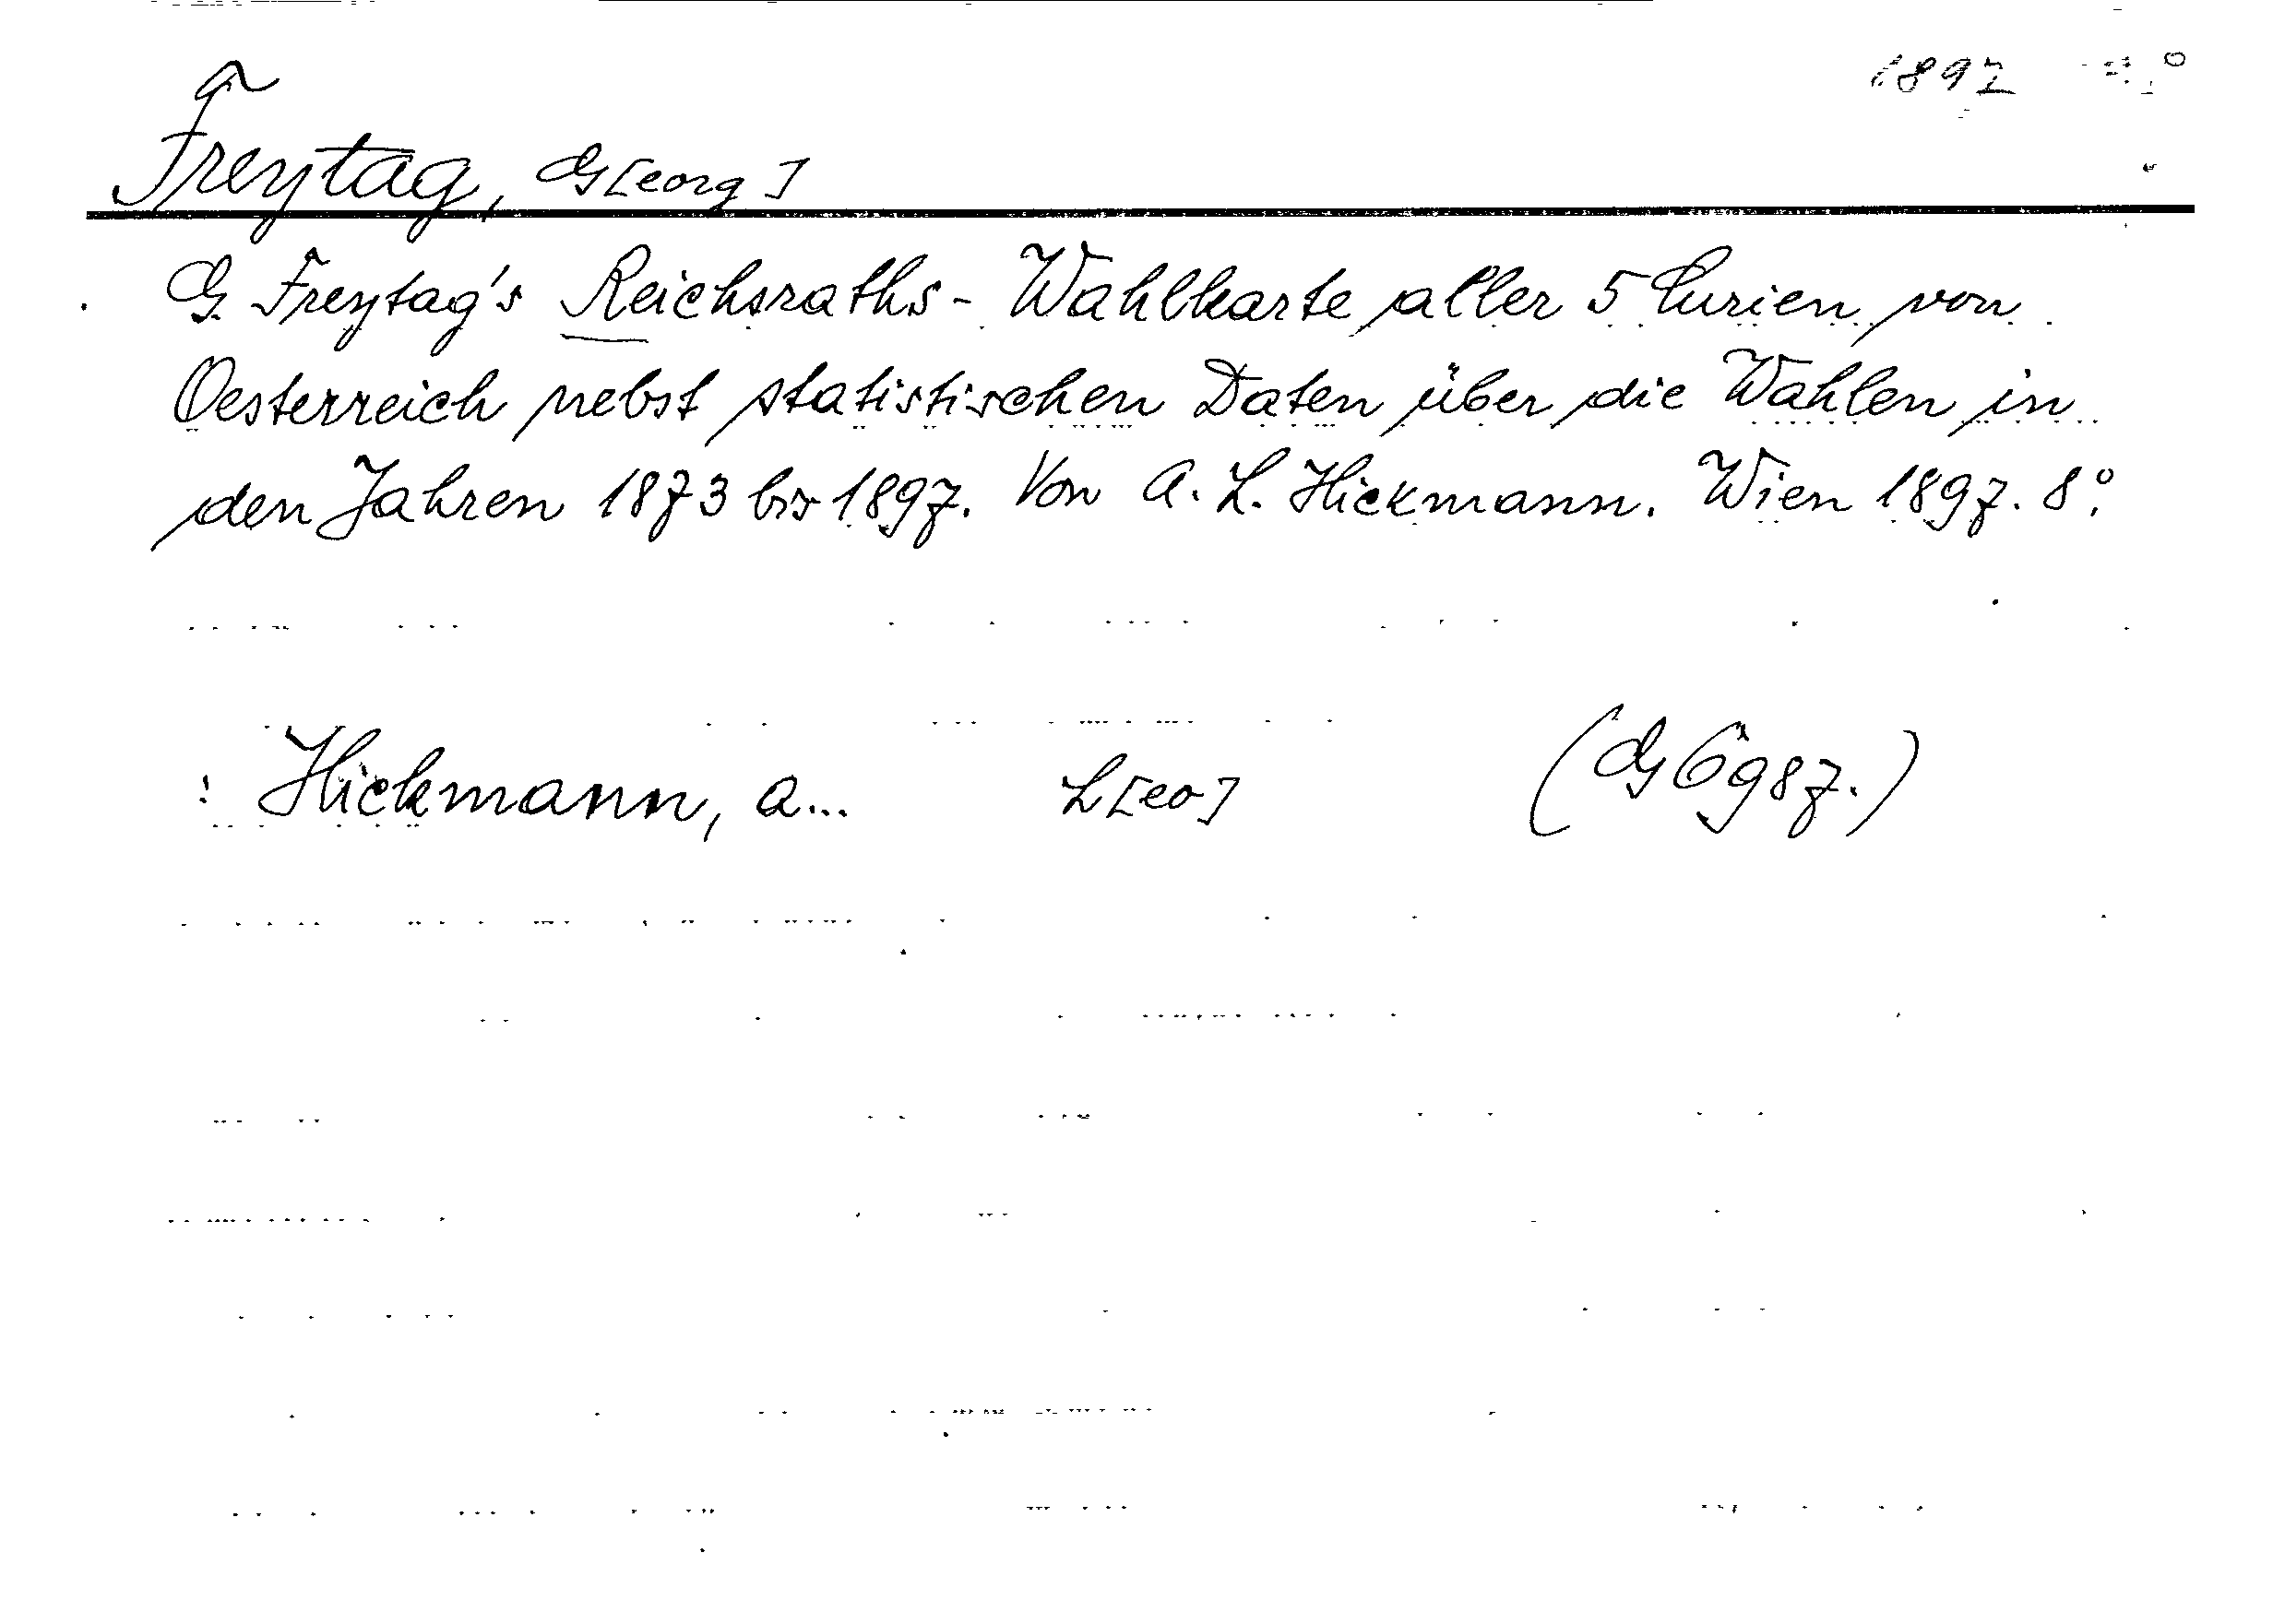 1897
Freytag, G[eorg]
G. Freytag's Reichsraths-Wahlkarte aller 5 Curien von
Oesterreich nebst statistischen Daten über die Wahlen in
den Jahren 1873 bis 1897. Von A. L. Hickmann. Wien 1897. 8°.
: Hickmann, A... L[eo] (G6987.)